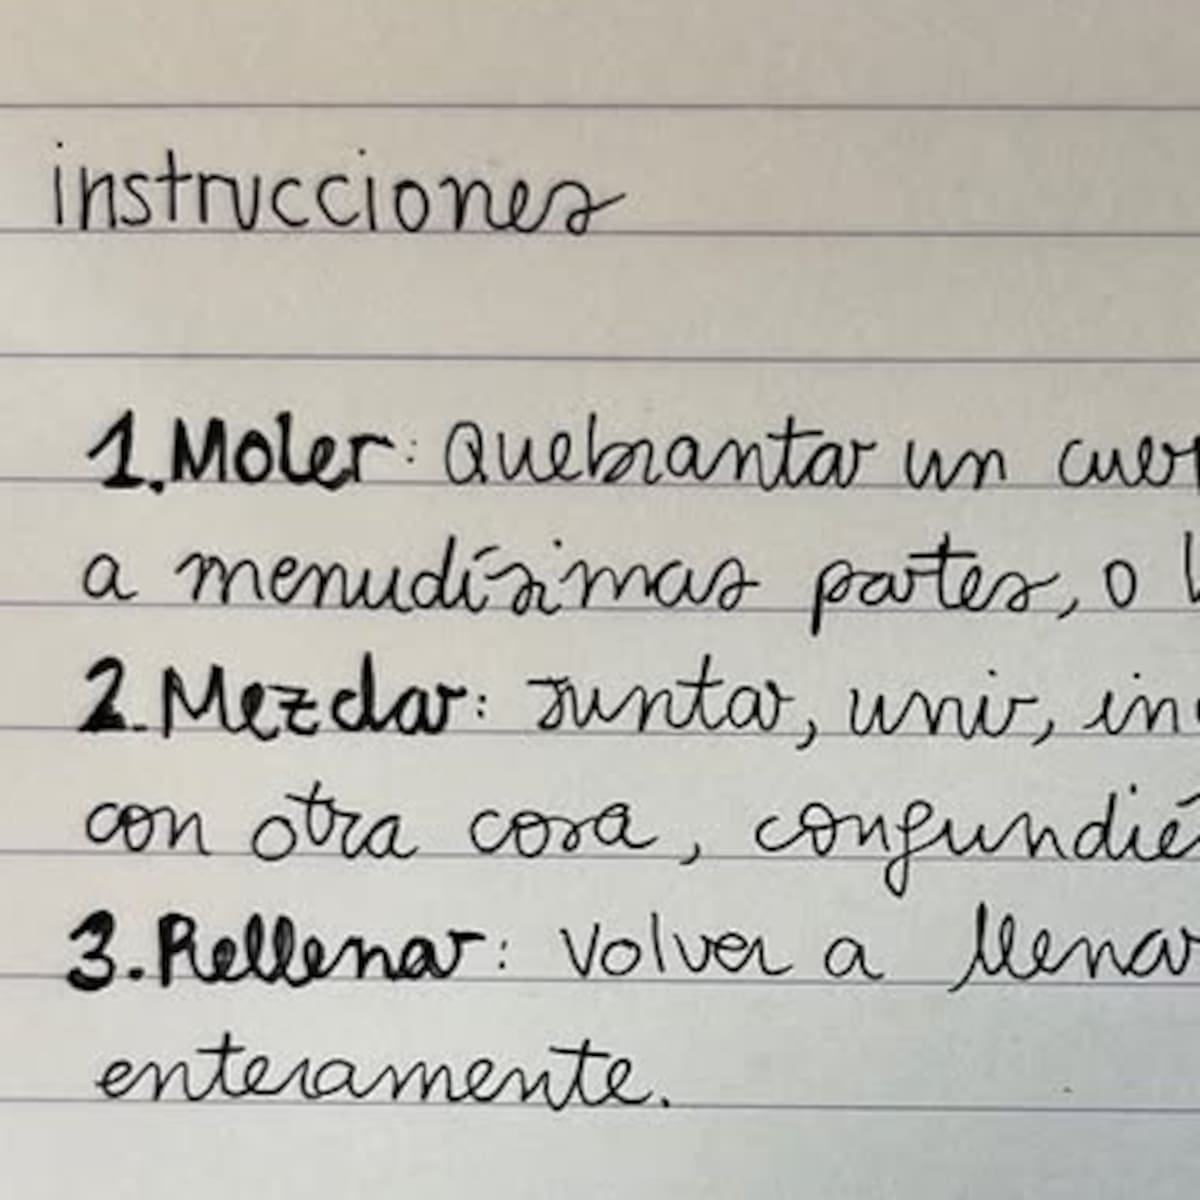 instrucciones
1. Moler: Quebrantar un cuer
a menudísimas partes, o l
2. Mezclar: Juntar, unir, in
con otra cosa, confundié
3. Rellenar: Volver a llenar
enteramente.